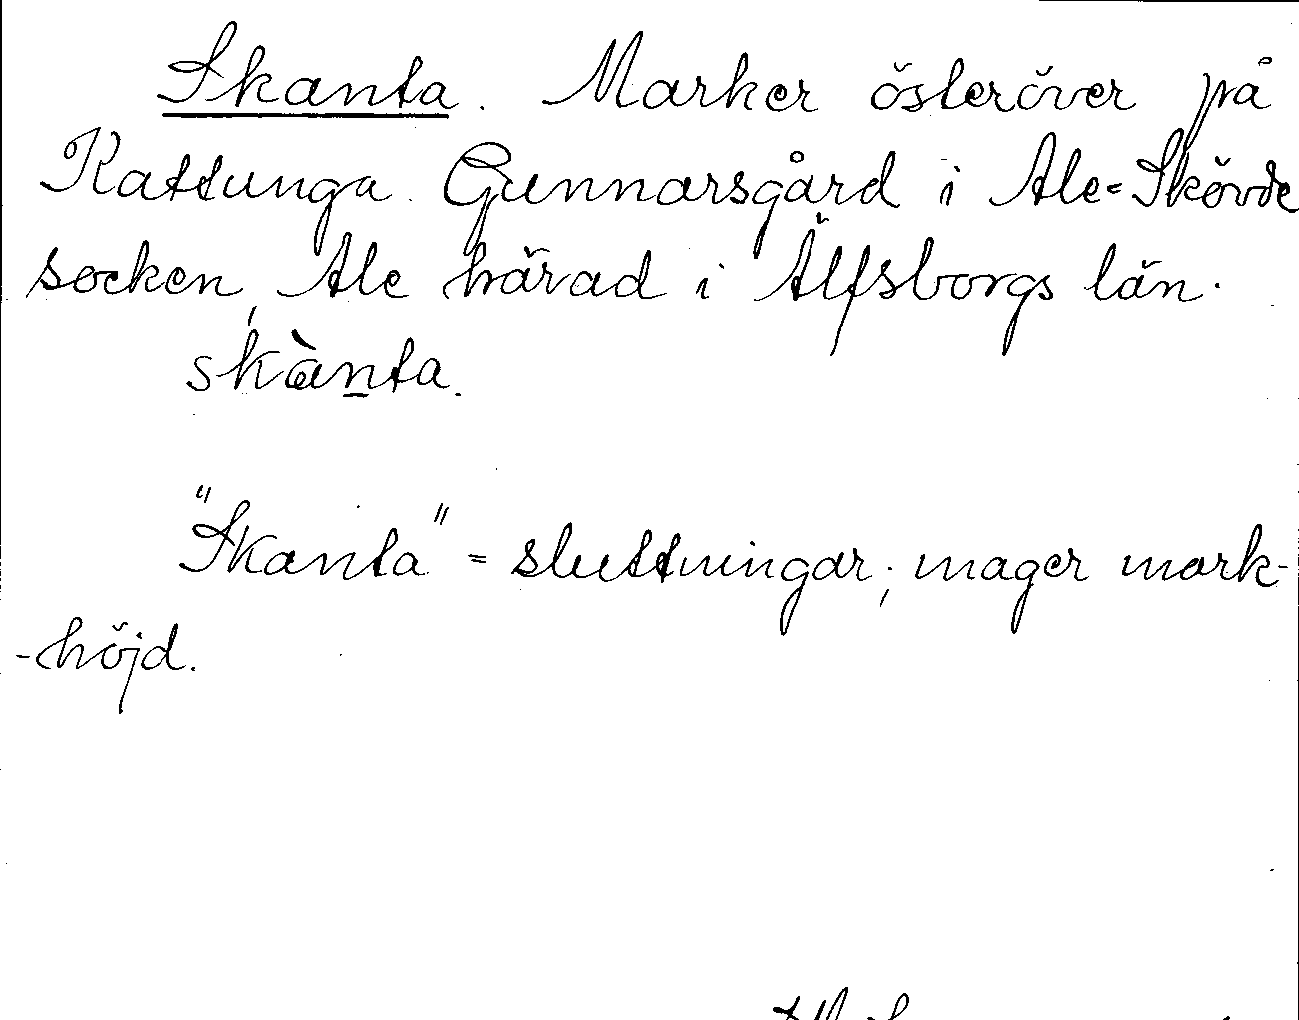 Skanta. Marker österöver på
Kattunga Gunnarsgård i Ale=Skövde
socken, Ale härad i Älfsborgs län.
skànta.
"Skanta" = sluttningar; mager mark-
-höjd.